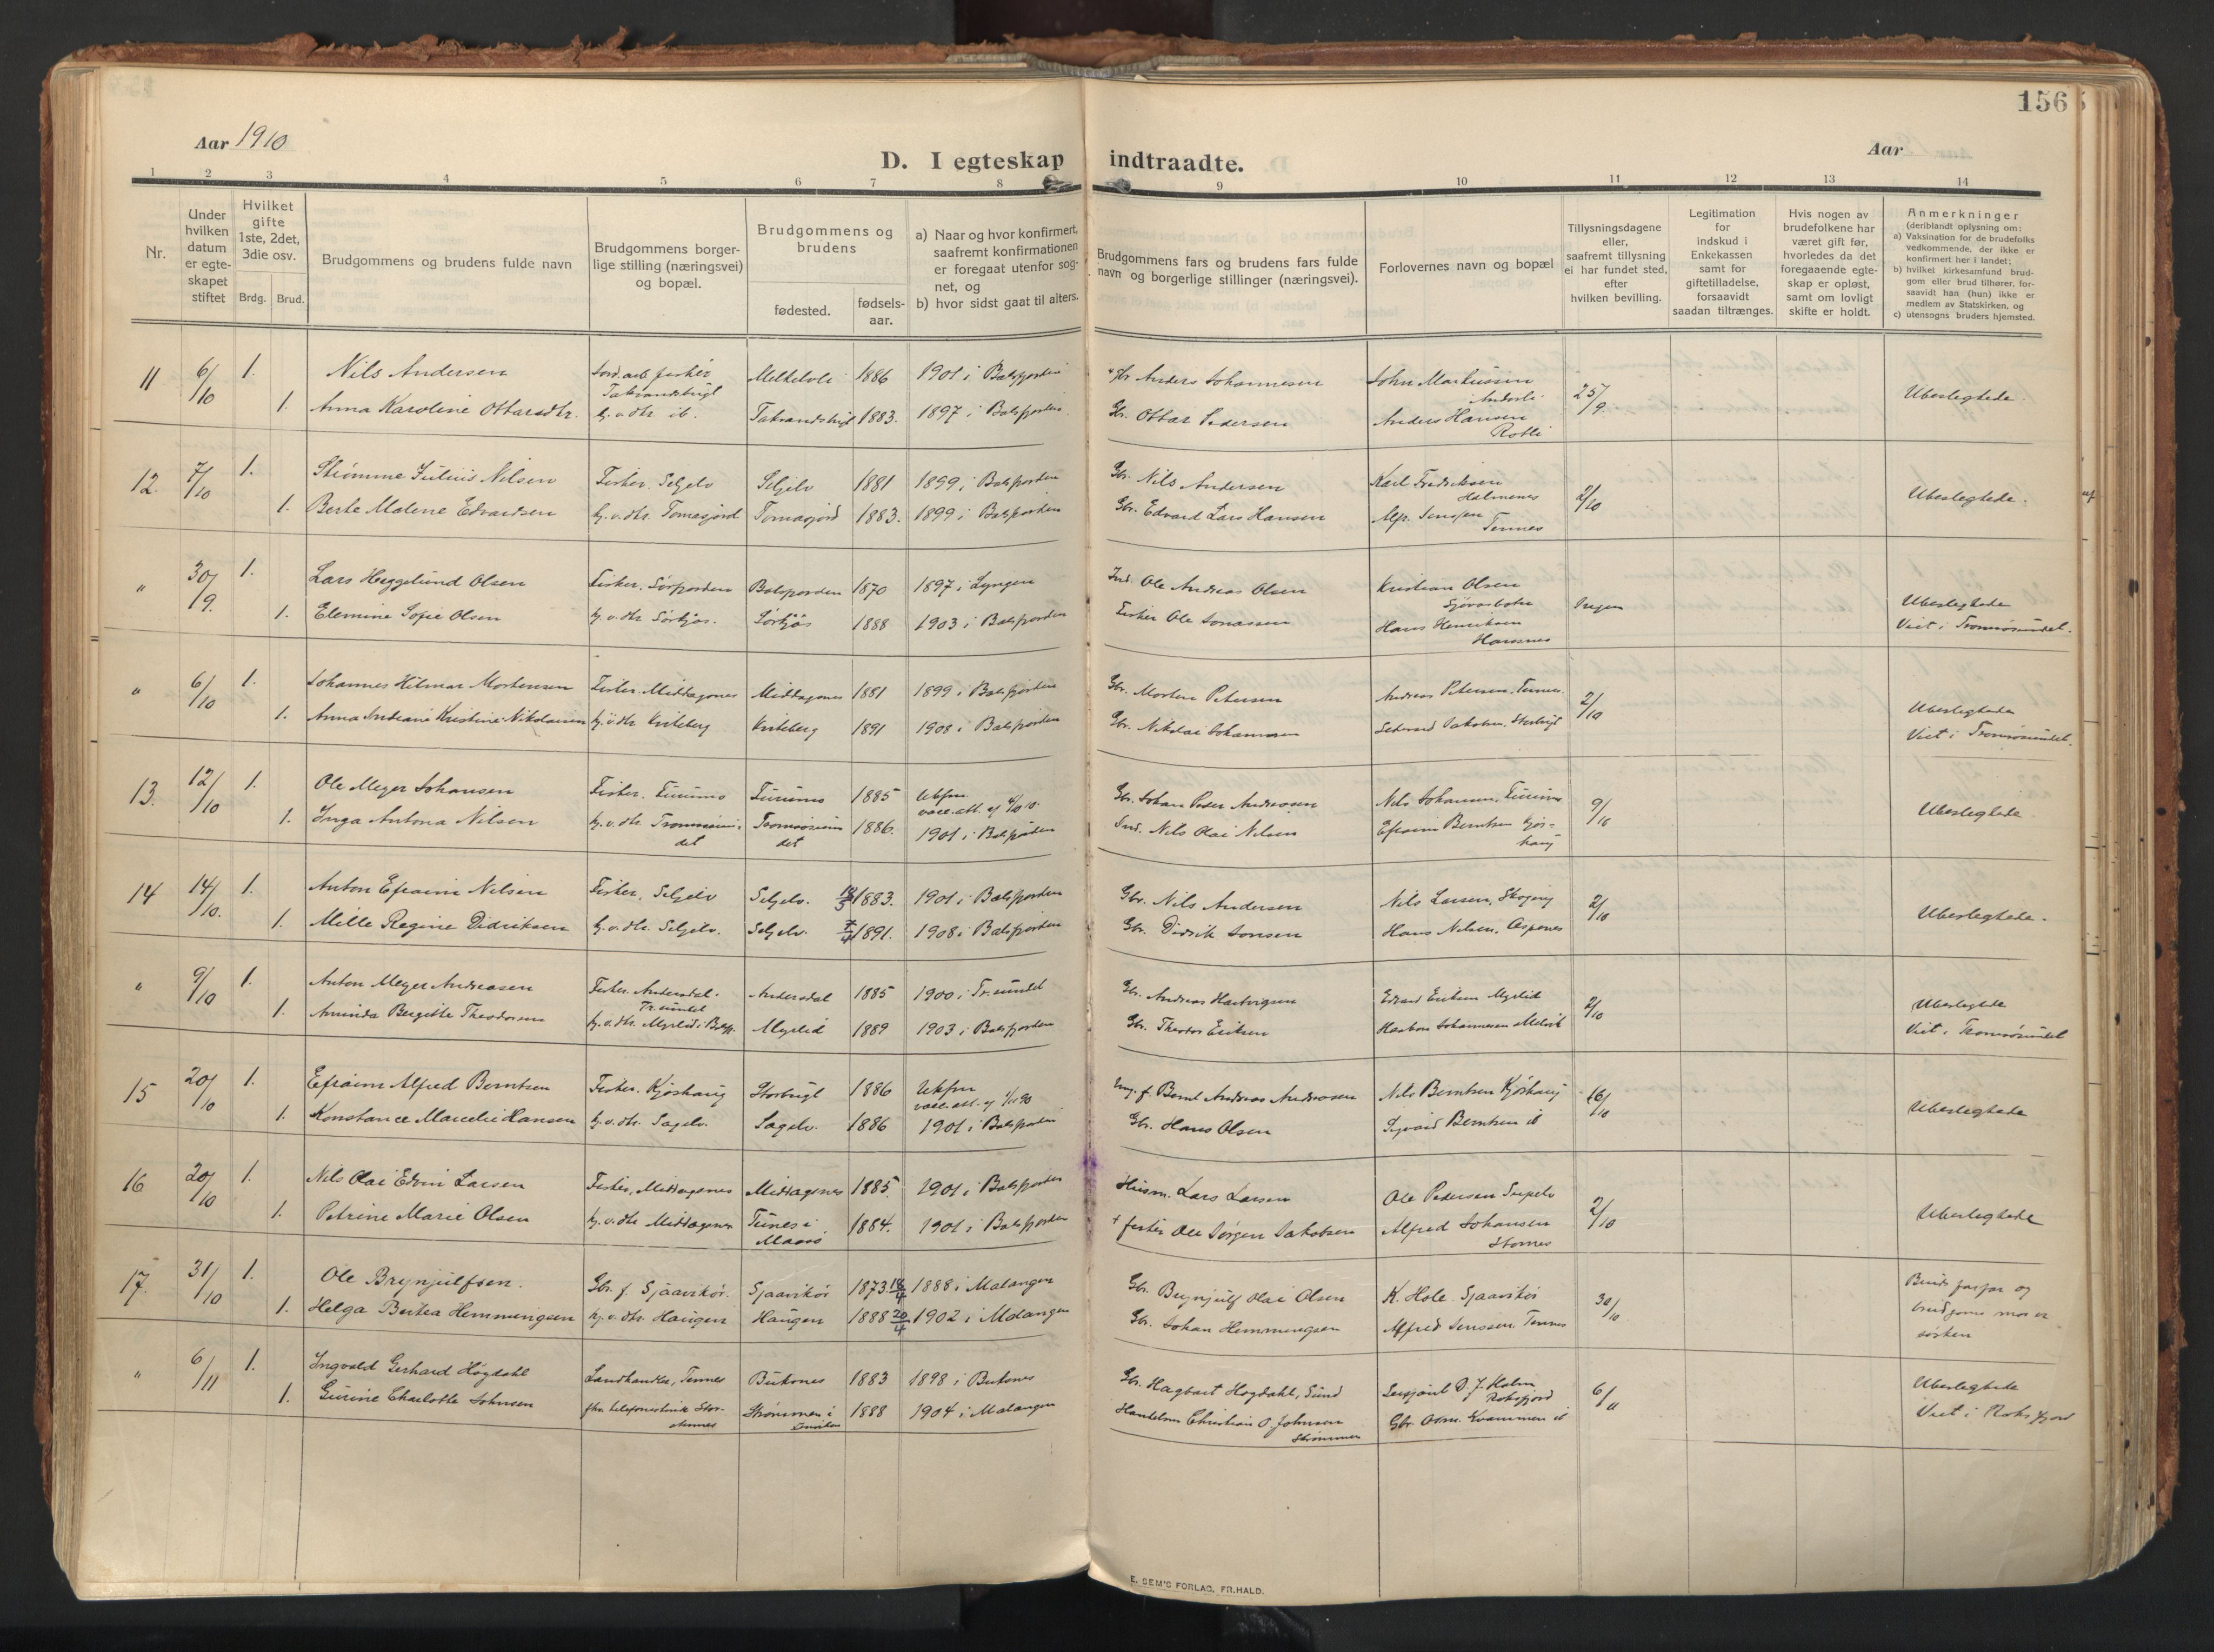 156
Aar 1910
Aar
D. I egteskap indtraadte.
1 2 3 4 5 6 7 8 9 10 11 12 13 14
Nr.
Under
hvilken
datum
er egte-
skapet
stiftet
Hvilket
gifte
1ste, 2det,
3die osv.
Brdg. Brud.
Brudgommens og brudens fulde navn
Brudgommens borger-
lige stilling (næringsvei)
og bopæl.
Brudgommens og
brudens
fødested.
fødsels-
aar.
a) Naar og hvor konfirmert,
saafremt konfirmationen
er foregaat utenfor sog-
net, og
b) hvor sidst gaat til alters.
Brudgommens fars og brudens fars fulde
navn og borgerlige stillinger (næringsvei).
Forlovernes navn og bopæl
Tillysningsdagene
eller,
saafremt tillysning
ei har fundet sted,
efter
hvilken bevilling.
Legitimation
for
indskud i
Enkekassen
samt for
giftetilladelse,
forsaavidt
saadan tiltrænges.
Hvis nogen av
brudefolkene har
været gift før,
hvorledes da det
foregaaende egte-
skap er opløst,
samt om lovligt
skifte er holdt.
Anmerkninger
(deriblandt oplysning om:
a) Vaksination for de brudefolks
vedkommende, der ikke er
konfirmert her i landet;
b) hvilket kirkesamfund brud-
gom eller brud tilhører, for-
saavidt han (hun) ikke er
medlem av Statskirken, og
c) utensogns bruders hjemsted.
11 6/10 1. Nils Andersen fisker Melkelvli 1886 1901 i Balsfjorden Anders Johannesen John Markussen 25/9 Ubeslegtede.
Takvandsbugt Andorli
1. Anna Karoline Ottarsdtr. g.v.dtr. ib. Takvandsbugt 1883. 1897 i Balsfjorden. Gbr. Ottar Pedersen Anders Hansen
12. 7/10 1. Strømme Julius Nilsen Fisker. Seljelv Seljelv 1881 1899 i Balsfjorden Gbr. Nils Andersen Karl Fredriksen 2/10 Ubeslegtede.
Holmenes
1. Berte Malene Edvardsen g.v.dtr. Tomasjord Tomasjord 1883. 1899 i Balsfjorden Gbr. Edvard Lars Hansen Alfr. Jenssen
Tennes
" 30/9. 1. Lars Heggelund Olsen Fisker. Sørfjorden Balsfjorden 1870 1897 i Lyngen Ind. Ole Andreas Olsen Kristian Olsen Ingen Ubeslegtede
1. Elemine Sofie Olsen g.v.dtr. Sørkjos. Sørkjos 1888 1903 i Balsfjorden Fisker Ole Jonassen Hans Henriksen Viet i Tromsøsundet.
" 6/10 1. Johannes Hilmar Mortensen Fisker. Middagsnes Middagsnes 1881 1899 i Balsfjorden Gbr. Morten Petersen Andreas Petersen, Tennes. 2/10 Ubeslegtede
1. Anna Andreane Kristine Nikolaisen g.v.dtr. Kviteberg Kviteberg 1891 1908 i Balsfjorden Gbr. Nikolai Johannesen Viet i Tromsøsundet.
13. 12/10 1. Ole Meyer Johansen Fisker. 1885 Ukfm. Gbr. Johan Peder Andreasen Nils Johansen, 9/10 Ubeslegtede.
vacc.att. af
1. Inga Antona Nilsen g.v.dtr. Tromsøsun-det Tromsøsundet 1886. 1901 i Balsfjorden Ind. Nils Olai Nilsen Efraim Berntsen Kjos-
haug
14 14/10. 1. Anton Efraim Nilsen Fisker, Seljelv Seljelv. 1883. 1901 i Balsfjorden Gbr. Nils Andersen Nils Larsen, 2/10 Ubeslegtede.
1. Mille Regine Didriksen g.v.dtr. Seljelv. Seljelv. 7/4 1891. 1908 i Balsfjorden Gbr. Didrik Jonsen Hans Nilsen, Aspenes
" 9/10 1. Anton Meyer Andreasen Fisker. Andersdal. Andersdal 1885 1900 i Tr. sundet Gbr. Andreas Hartvigsen Edvard Eriksen Myrlid 2/10 Ubeslegtede
Tr. sundet
1. Aminda Bergitte Theodorsen g.v.dtr. Myrlid i Balsfj. Myrlid 1889 1903 i Balsfjorden Gbr. Theodor Eriksen Haakon Johannesen Viet i Tromsøsundet
15 20/10 1. Efraim Alfred Berntsen Fisker. Kjoshaug Storbugt 1886 Ukfm. Bernt Andreas Andreasen Nils Berntsen Kjoshaug 16/10 Ubeslegtede
vacc.att. af
1. Konstance Marcelie Hansen g.v.dtr. Sagelv. Sagelv. 1886 1901 i Balsfjorden Gbr. Hans Olsen Sigvard Berntsen ib
16 20/10 1. Nils Olai Edvin Larsen Fisker, Middagsnes Middagsnes 1885. 1901 i Balsfjorden Husm. Lars Larsen Ole Pedersen 2/10 Ubeslegtede
1. Petrine Marie Olsen g.v.dtr. Middagsnes Tunes i 1884. 1901 i Balsfjorden + fisker Ole Jørgen Jakobsen Alfred Johansen
Maasø Stornes
17. 31/10 1. Ole Brynjulfsen. Gbr. f. Sjaavikør. Sjaavikør 1873. 18/4 1888 i Malangen Gbr. Brynjulf Olai Olsen K. Hole. Sjaavikør 30/10 Bruds farfar og
1. Helga Bertea Hemmingsen g.v.dtr. Haugen Haugen 1888 20/4 1902 i Malangen Gbr. Johan Hemmingsen Alfred Jenssen. Tennes brudgoms mor er
søsken
" 6/11 1. Ingvald Gerhard Høgdahl Landhandler, Tennes Buksnes 1883 1898 i Buksnes Gbr. Hagbart Høgdahl, Sund D. J. Holm 6/11 Ubeslegtede
Roksfjord
1. Gurine Charlotte Johnsen fhv. telefonistinde Stor- Strømmen i 1888 1904 i Malangen Handelsm Christian O. Johnsen Gbr. Kvammen ib Viet i Roksfjord
stennes Strømmen
E. SEM'S FORLAG, FR.HALD.